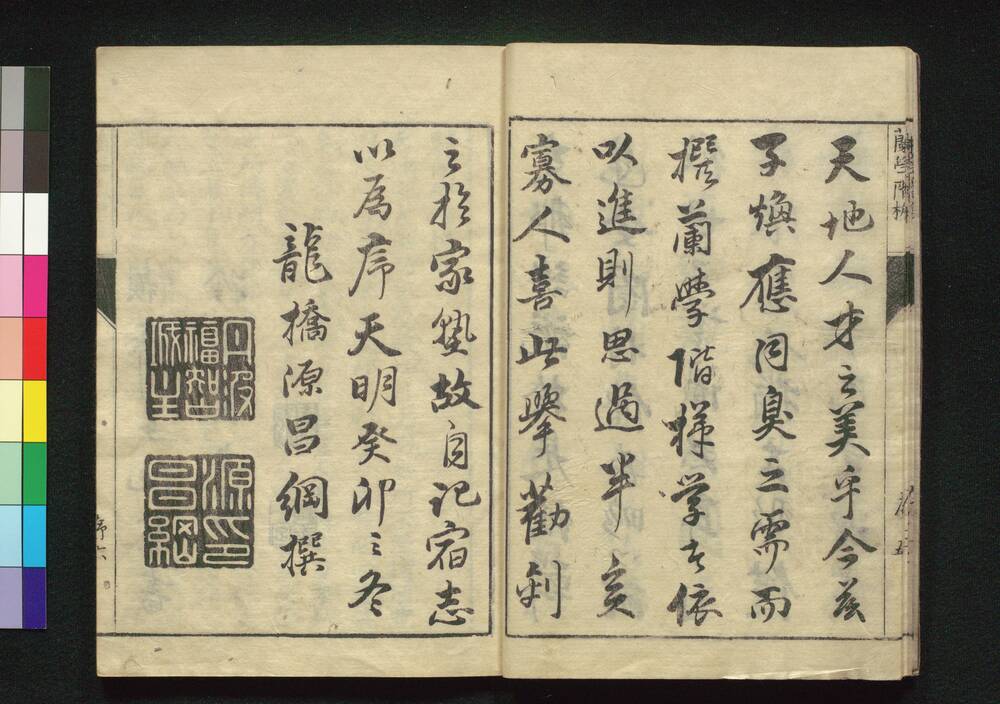 蘭學階梯
天地人才之美乎今茲
子煥應同臭之需而
撰蘭學階梯学者依
以進則思過半哉亥
寡人喜此擧勸剞
之於家塾故自記宿志
以為序天明癸卯之冬
龍橋源昌綱撰
丹波福智城主
源印昌綱
序六